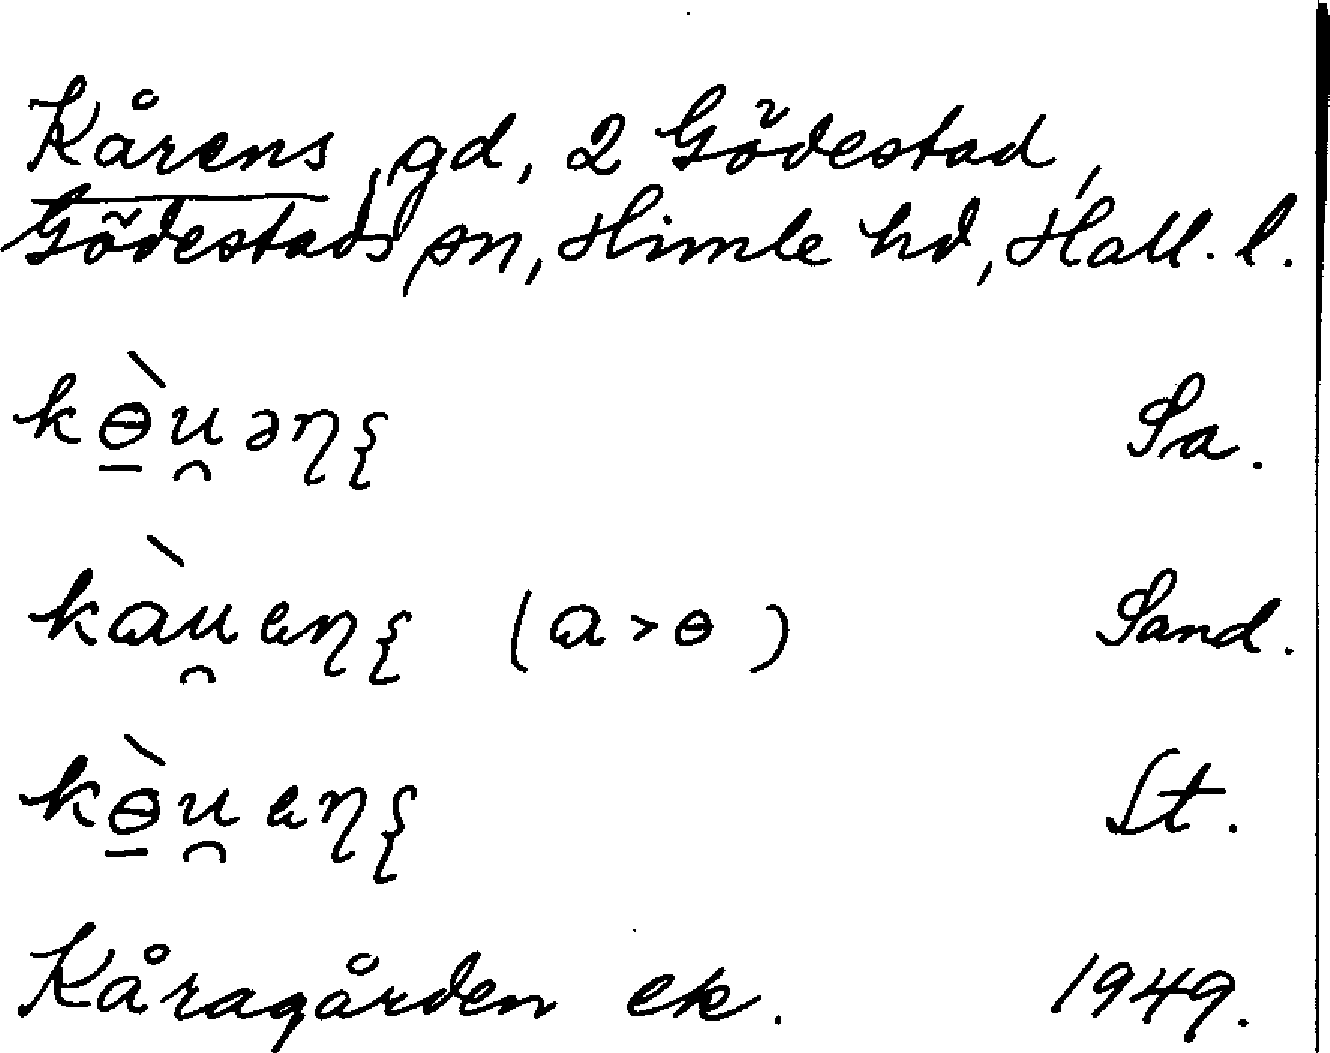 Kårens, gd, 2 Gödestad,
Gödestads sn, Himle hd, Hall. l.
kɵ̠̀u̯əηξ Sa.
kὰu̯ɐηξ (ɑ > ɵ) Sand.
kɵ̠̀u̯ɐηξ St.
Kåragården ek. 1949.